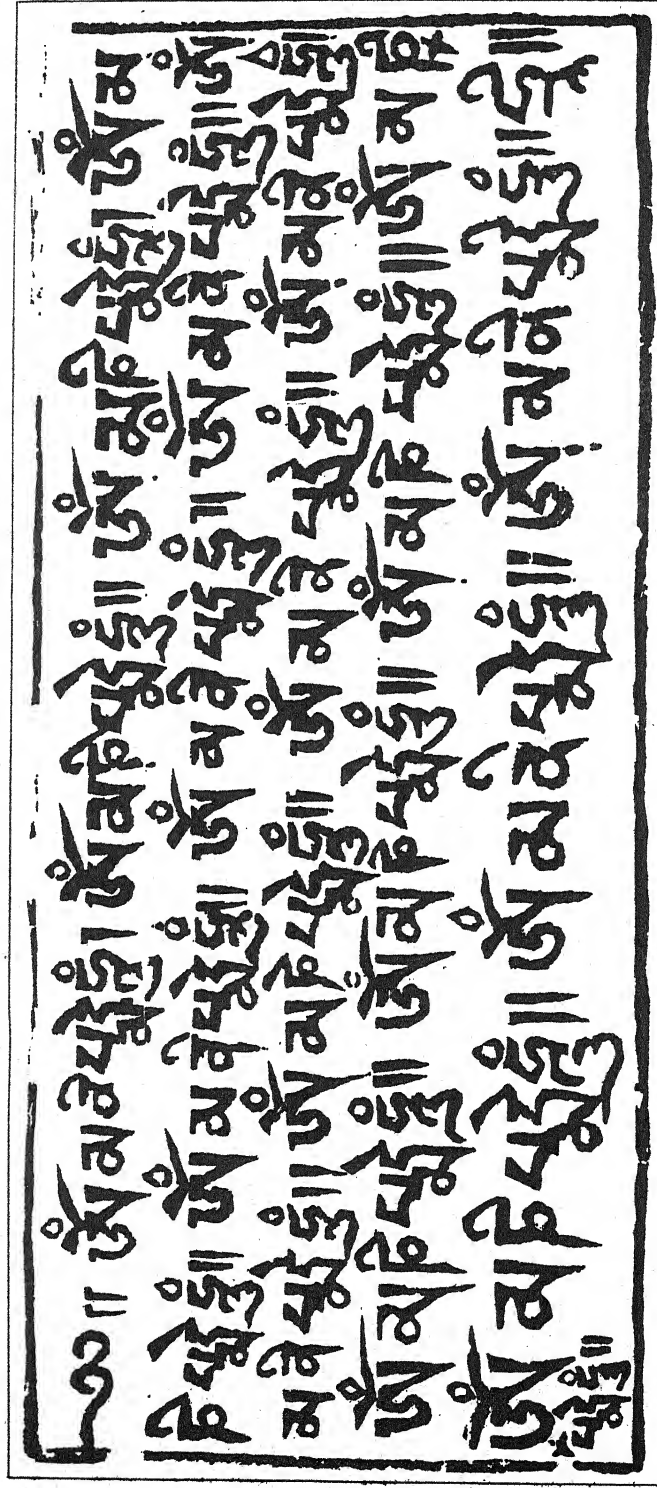 ༄༅།། ཨོཾ་མ་ཎི་པདྨེ་ཧཱུྃ། ཨོཾ་མ་ཎི་པདྨེ་ཧཱུྃ།། ཨོཾ་མ་ཎི་པདྨེ་ཧཱུྃ། ཨོཾ་མ
ཎི་པདྨེ་ཧཱུྃ།། ཨོཾ་མ་ཎི་པདྨེ་ཧཱུྃ།། ཨོཾ་མ་ཎི་པདྨེ་ཧཱུྃ།། ཨོཾ་མ་ཎི་པདྨེ་ཧཱུྃ།། ཨོཾ
མ་ཎི་པདྨེ་ཧཱུྃ།། ཨོཾ་མ་ཎི་པདྨེ་ཧཱུྃ།། ཨོཾ་མ་ཎི་པདྨེ་ཧཱུྃ།། ཨོཾ་མ་ཎི་པདྨེ་ཧཱུྃ།
ཨོཾ་མ་ཎི་པདྨེ་ཧཱུྃ།། ཨོཾ་མ་ཎི་པདྨེ་ཧཱུྃ།། ཨོཾ་མ་ཎི་པདྨེ་ཧཱུྃ།། ཨོཾ་མ་ཎི
ཨོཾ་མ་ཎི་པདྨེ་ཧཱུྃ།། ཨོཾ་མ་ཎི་པདྨེ་ཧཱུྃ།། ཨོཾ་མ་ཎི་པདྨེ་ཧཱུྃ།། ཧྲཱི།།
པདྨེ་ཧཱུྃ།།